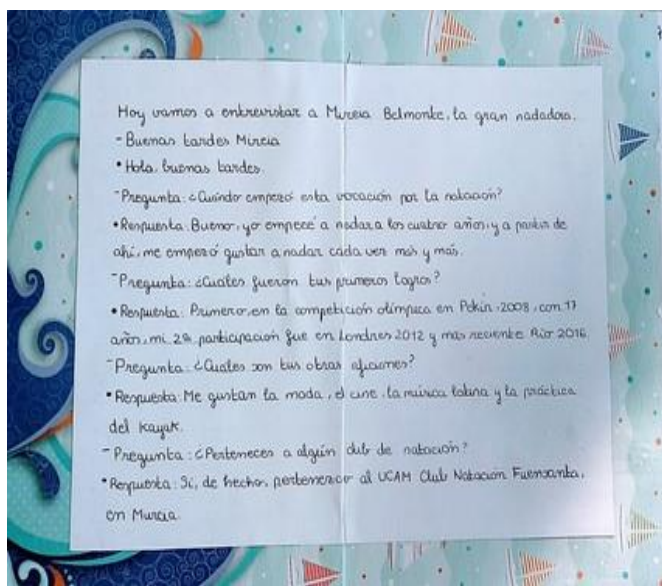 Hoy vamos a entrevistar a Mireia Belmonte, la gran nadadora.
- Buenas tardes Mireia
• Hola, buenas tardes.
- Pregunta: ¿Cuándo empezó esta vocación por la natación?
• Respuesta. Bueno, yo empecé a nadar a los cuatro años, y a partir de
ahí, me empezó gustar a nadar cada vez más y más.
- Pregunta: ¿Cuales fueron tus primeros logros?
• Respuesta: Primero, en la competición olímpica en Pekín, 2008, con 17
años, mi 2ª participación fue en Londres 2012 y mas reciente Rio 2016.
- Pregunta: ¿Cuales son tus otras aficiones?
• Respuesta: Me gustan la moda, el cine, la música latina y la práctica
del kayak.
- Pregunta: ¿Perteneces a algún club de natación?
• Respuesta: Sí, de hecho, pertenezco al UCAM Club Natación Fuensanta,
en Murcia.